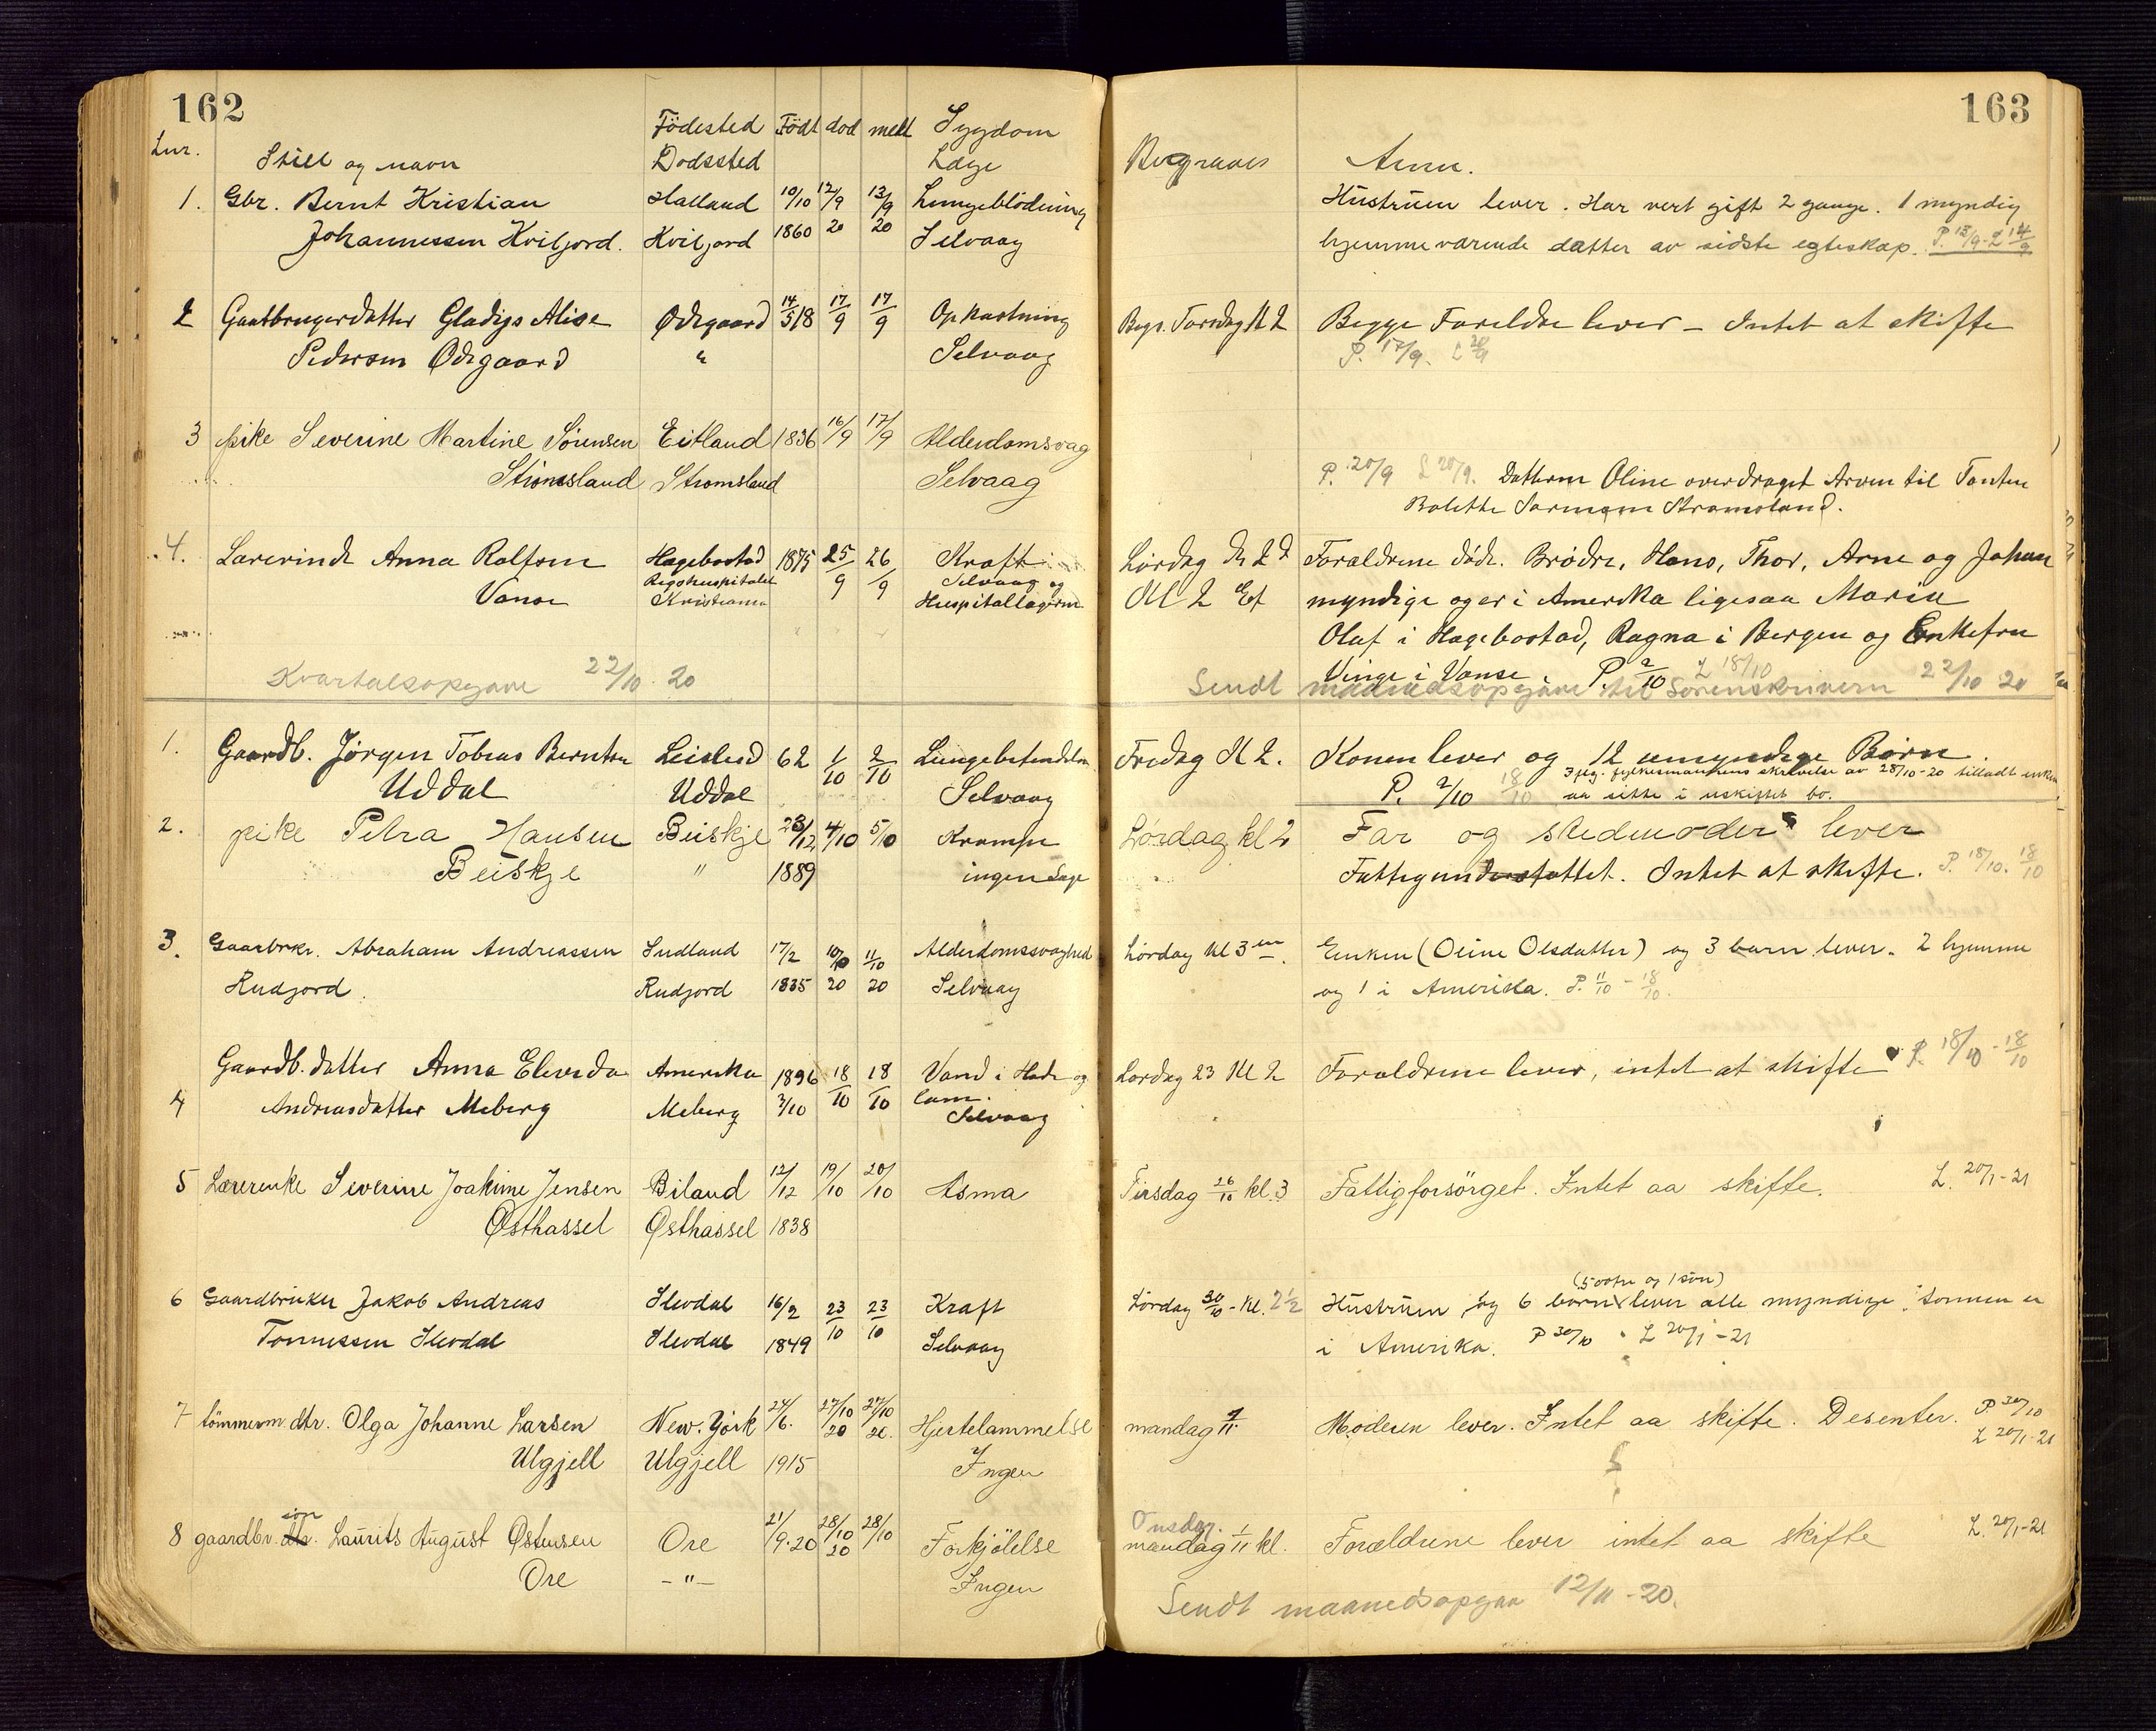 162
163
Lnr. Still og navn Födested Dodssted Födt död meldt Sygdom Læge Begraves Anm.
1. Gbr. Bernt Kristian Halland 10/10 12/9 13/9 Lungeblödning Hüstrüen lever. Har vert gift 2 gange. 1 myndig
Johannessen Kviljord. Kviljord 1860 20 20 Selvaag hjemmeværende datter av sidste egteskap. P. 13/9 - L 14/9
2 Gaatbrugerdatter Gladys Alise Ødegaard 14/5 18 17/9 17/9 Opkastning Begr. Torsdag Kl 2 Begge Foreldre lever - Intet at skifte
Pedersen Ødegaard " Selvaag P. 17/9. L 20/9
3 pike Severine Martine Sörensen Eitland 1836 16/9 17/9 Alderdomsvag
Strömsland Stromsland Selvaag P. 20/9 L 20/9. Datteren Oline overdraget Arven til Tanten
Bolette Sørensen Strømsland.
4. Lærerinde Anna Rolfsen Hægebostad 1875 25/9 26/9 Kræft Lørdag d. 2d Forældrene døde. Brødre, Hans, Thor, Arne og Johan
Vanse Rigshospitalet Kristiania Selvaag og Hospitallægerne Kl 2 Ef myndige og er i Amerika ligesaa Marie
Olaf i Hægebostad, Ragna i Bergen og Enkefru
Vinge i Vanse. P. 2/10 L 18/10
Kvartalsopgave 22/10 20 Sendt maanedsopgave til Sorenskriveren 22/10 20
1. Gaardb. Jørgen Tobias Berntsen Leislid 62 1/10 2/10 Lungebetendelse Fredag Kl 2. Konen lever og 12 umyndige Børn.
Uddal Uddal Selvaag P. 2/10 18/10 Iflg. fylkesmannens skrivelse av 28/10-20 tilladt enken
aa sitte i uskiftet bo.
2. pike Petra Hansen Beiskje 23/12 4/10 5/10 Krampe Lørdag kl 2 Far og stedmoder lever
Beiskje " 1889 ingen Læge Fattigunderstøttet. Intet at skifte. P. 18/10. 18/10
3. Gaardbrkr. Abraham Andreassen Sudland 17/2 10/10 11/10 Alderdomssvaghed Lördag kl 3 em. Enken (Oline Olsdatter) og 3 barn lever. 2 hjemme
Rudjord Rudjord 1835 20 20 Selvaag og 1 i Amerika. P. 11/10 - 18/10.
4 Gaardb. datter Anna Elevida Amerika 1896 18/10 18/10 Vand i Hode og Lørdag 23 Kl 2 Forældrene lever, intet at skifte P. 18/10 - 18/10
Andreasdatter Meberg Meberg 2/10 lam. Selvaag
5 Lærerenke Severine Joakime Jensen Biland 12/12 19/10 20/10 Asma Tirsdag 26/10 kl. 3 Fattigforsörget. Intet aa skifte. L. 20/1-21
Østhassel Østhassel 1838
6 Gaardbruker Jakob Andreas Slevdal 16/2 23/10 23/10 Kræft Lördag 30/10 - Kl. 2½ Hüstrüen og 6 børn (5 dötre og 1 sön) lever alle myndige. Sonnen er
Tönnessen Slevdal Slevdal 1849 Selvaag i Amerika. P 30/10 L 20/1-21
7 tömmerm. dtr. Olga Johanne Larsen New. York 24/6. 27/10 20 27/10 20. Hjertelammelse mandag 1/11 Moderen lever. Intet aa skifte. Desenter. P 30/10
Ulgjell Ulgjell 1915 Ingen L 20/1-21
8 gaardbr. dtr. sön Laurits August Østensen Ore 21/9.20 28/10 20 28/10 Forkjölelse Onsdag. mandag 1/11 kl. Forældrene lever intet aa skifte L. 20/1-21
Ore -"- Ingen
Sendt maanedsopgav 12/11-20.